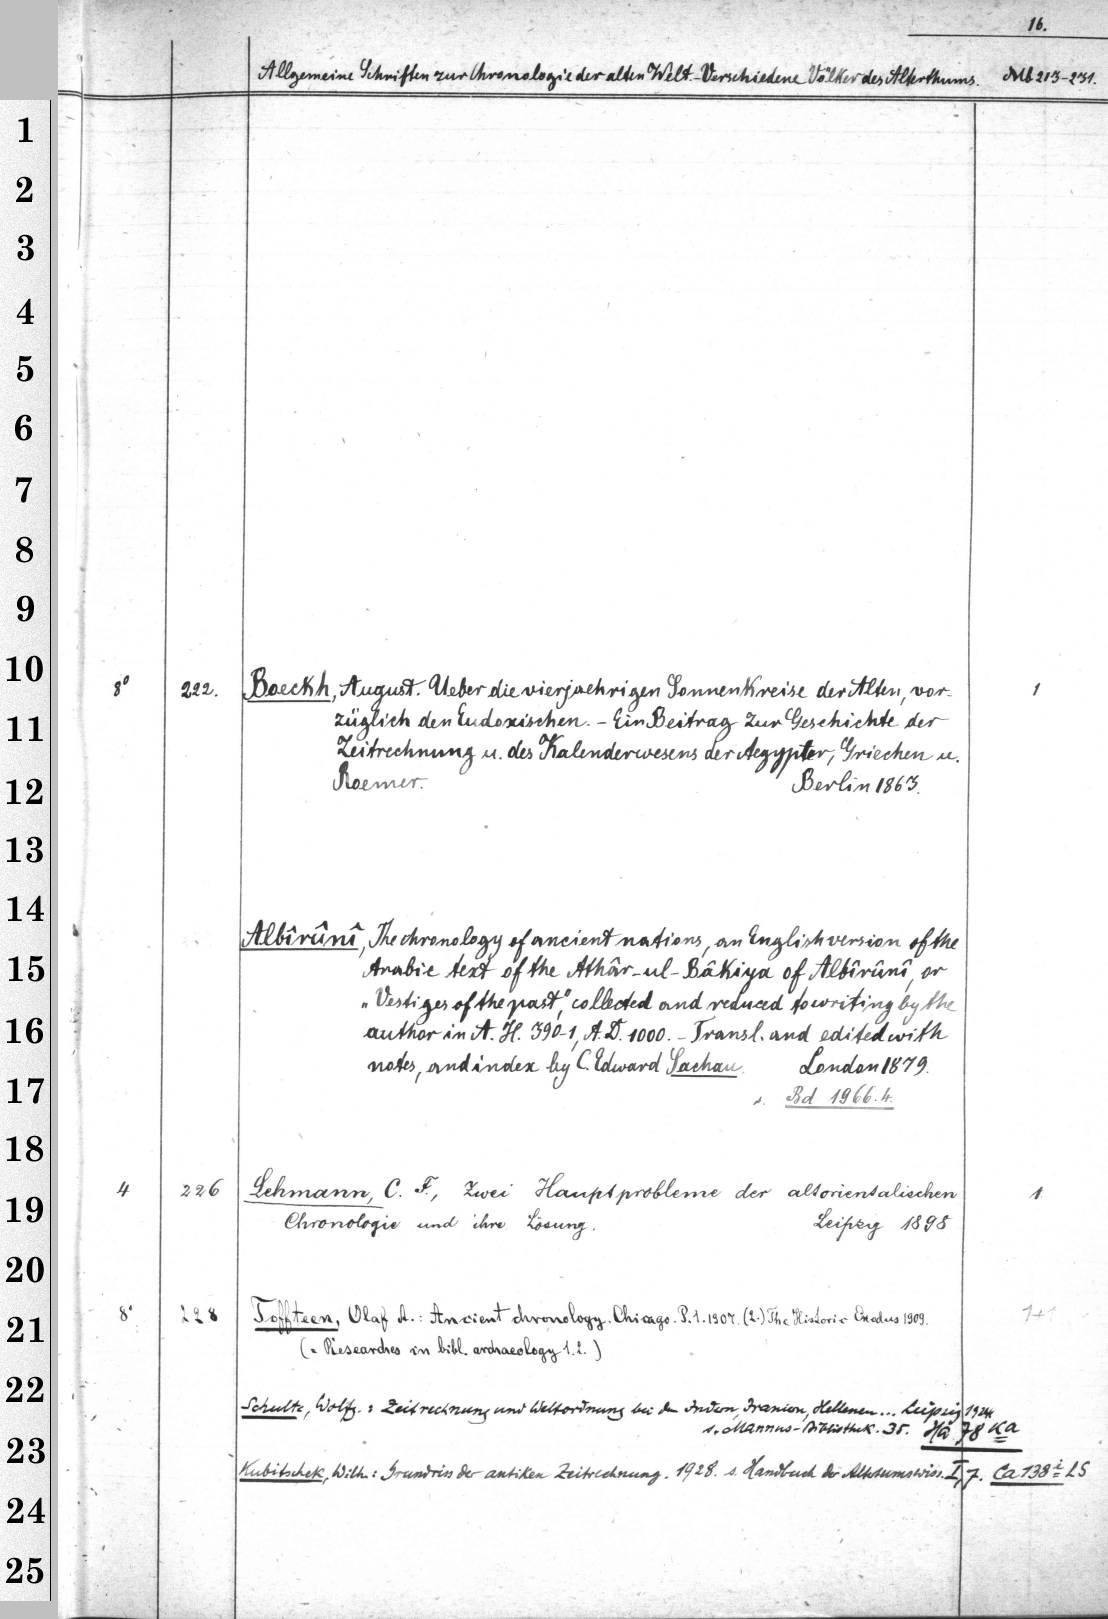 16.
Allgemeine Schriften zur Chronologie der alten Welt. - Verschiedene Völker des Alterthums. Mb 213-231.
1
2
3
4
5
6
7
8
9
10
8° 222. Boeckh, August. Ueber die vierjaehrigen Sonnenkreise der Alten, vor- 1
11
züglich den Eudoxischen. - Ein Beitrag zur Geschichte der
Zeitrechnung u. des Kalenderwesens der Aegypter, Griechen u.
12
Roemer. Berlin 1863.
13
14
Albîrûnî, The chronology of ancient nations, an English version of the
15
Arabic text of the Athâr-ul-Bâkiya of Albîrûnî, or
„Vestiges of the past,“ collected and reduced to writing by the
16
author in A. H. 390-1, A. D. 1000. - Transl. and edited with
notes, and index by C. Edward Sachau. London 1879.
17
s. Bd 1966.4.
18
4 226 Lehmann, C. F., Zwei Hauptprobleme der altorientalischen 1
19
Chronologie und ihre Lösung. Leipzig 1898
20
8° 228 Toffteen, Olaf A.: Ancient chronology. Chicago. P. 1. 1907. (2.) The Historic Exodus 1909. 1+1
21
(= Researches in bibl. archaeology 1.2.)
22
Schultz, Wolfg.: Zeitrechnung und Weltordnung bei den Indern, Iraniern, Hellenen... Leipzig 1924
s. Mannus-Bibliothek. 35. Ha 78 Ka
23
Kubitschek, Wilh.: Grundriss der antiken Zeitrechnung. 1928. s. Handbuch der Altertumswiss. I, 7. Ca 138 i LS
24
25